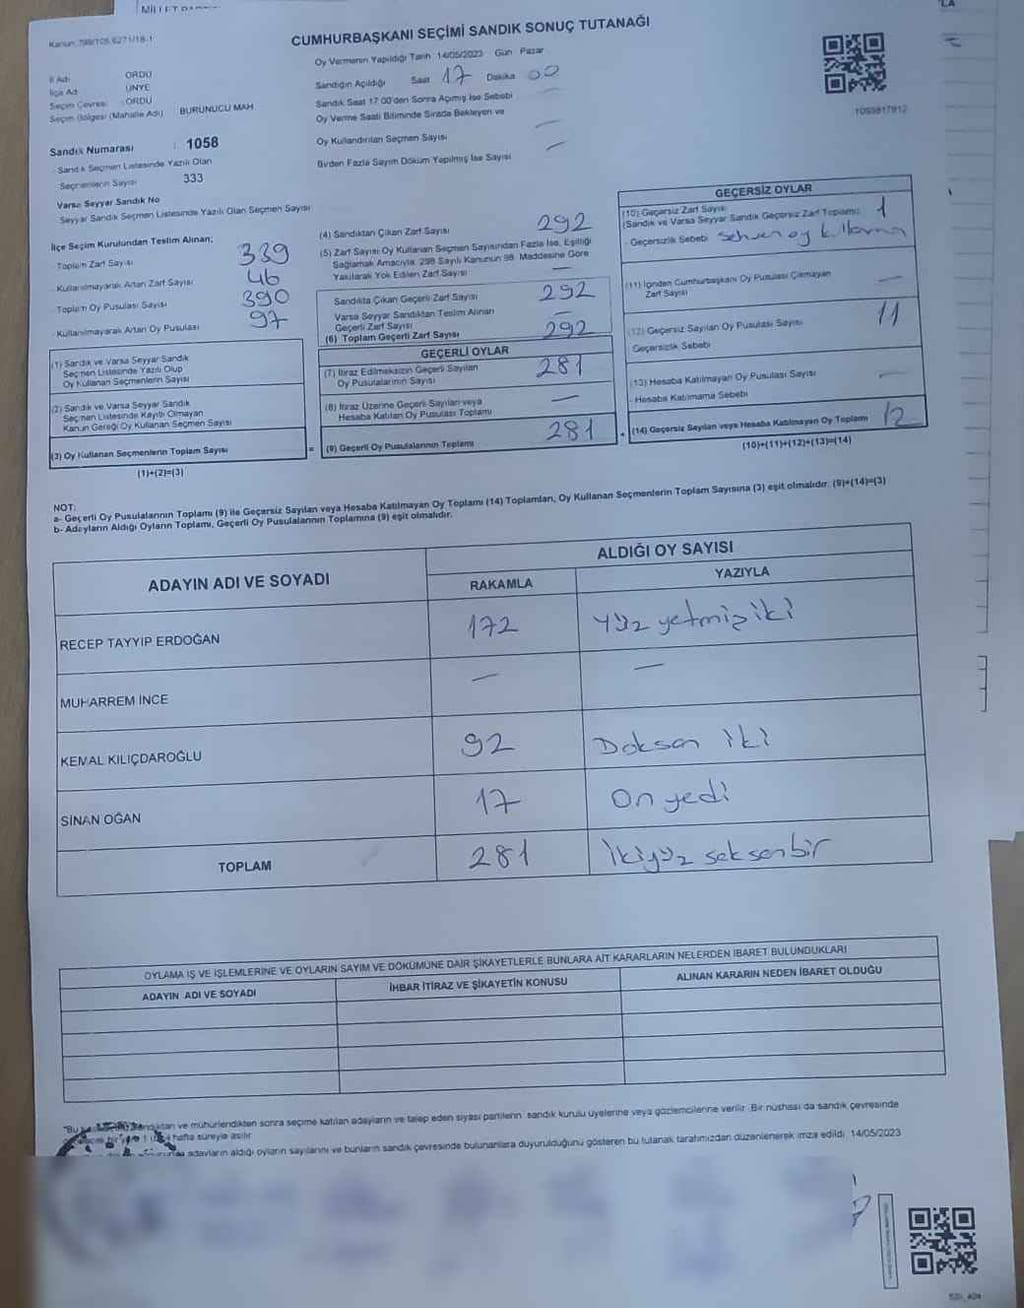 Kanun: 298/105, 6271/18-1
CUMHURBAŞKANI SEÇİMİ SANDIK SONUÇ TUTANAĞI
İl Adı ORDU
İlçe Adı ÜNYE
Seçim Çevresi ORDU
Seçim Bölgesi (Mahalle Adı) BURUNUCU MAH
Sandık Numarası : 1058
Sandık Seçmen Listesinde Yazılı Olan
Seçmenlerin Sayısı 333
Varsa Seyyar Sandık No
Seyyar Sandık Seçmen Listesinde Yazılı Olan Seçmen Sayısı
Oy Vermenin Yapıldığı Tarih 14/05/2023 Gün Pazar
Sandığın Açıldığı Saat 17 Dakika 00
Sandık Saat 17.00'den Sonra Açımış İse Sebebi
Oy Verme Saati Bitiminde Sırada Bekleyen ve —
Oy Kullandırılan Seçmen Sayısı —
Birden Fazla Sayım Döküm Yapılmış İse Sayısı
İlçe Seçim Kurulundan Teslim Alınan;
Toplam Zarf Sayısı 339
Kullanılmayarak Artan Zarf Sayısı 46
Toplam Oy Pusulası Sayısı 390
Kullanılmayarak Artan Oy Pusulası 97
(1) Sandık ve Varsa Seyyar Sandık
Seçmen Listesinde Yazılı Olup
Oy Kullanan Seçmenlerin Sayısı
(2) Sandık ve Varsa Seyyar Sandık
Seçmen Listesinde Kayıtlı Olmayan
Kanun Gereği Oy Kullanan Seçmen Sayısı
(3) Oy Kullanan Seçmenlerin Toplam Sayısı
(1)+(2)=(3)
(4) Sandıktan Çıkan Zarf Sayısı 292
(5) Zarf Sayısı Oy Kullanan Seçmen Sayısından Fazla İse, Eşitliği
Sağlamak Amacıyla, 298 Sayılı Kanunun 98. Maddesine Göre
Yakılarak Yok Edilen Zarf Sayısı —
Sandıkta Çıkan Geçerli Zarf Sayısı 292
Varsa Seyyar Sandıktan Teslim Alınan
Geçerli Zarf Sayısı —
(6) Toplam Geçerli Zarf Sayısı 292
GEÇERLİ OYLAR
(7) İtiraz Edilmeksizin Geçerli Sayılan
Oy Pusulalarının Sayısı 281
(8) İtiraz Üzerine Geçerli Sayılan veya
Hesaba Katılan Oy Pusulası Toplamı —
= (9) Geçerli Oy Pusulalarının Toplamı 281 +
1095817912
GEÇERSİZ OYLAR
(10) Geçersiz Zarf Sayısı
(Sandık ve Varsa Seyyar Sandık Geçersiz Zarf Toplamı) 1
Geçersizlik Sebebi Sehven oy kullanma
(11) İçinden Cumhurbaşkanı Oy Pusulası Çıkmayan
Zarf Sayısı —
(12) Geçersiz Sayılan Oy Pusulası Sayısı 11
Geçersizlik Sebebi
(13) Hesaba Katılmayan Oy Pusulası Sayısı —
Hesaba Katılmama Sebebi
(14) Geçersiz Sayılan veya Hesaba Katılmayan Oy Toplamı 12
(10)+(11)+(12)+(13)=(14)
NOT:
a- Geçerli Oy Pusulalarının Toplamı (9) ile Geçersiz Sayılan veya Hesaba Katılmayan Oy Toplamı (14) Toplamları, Oy Kullanan Seçmenlerin Toplam Sayısına (3) eşit olmalıdır. (9)+(14)=(3)
b- Adayların Aldığı Oyların Toplamı, Geçerli Oy Pusulalarının Toplamına (9) eşit olmalıdır.
ADAYIN ADI VE SOYADI
ALDIĞI OY SAYISI
RAKAMLA YAZIYLA
RECEP TAYYIP ERDOĞAN 172 Yüz yetmiş iki
MUHARREM İNCE — —
KEMAL KILIÇDAROĞLU 92 Doksan iki
SİNAN OĞAN 17 On yedi
TOPLAM 281 İkiyüz seksenbir
OYLAMA İŞ VE İŞLEMLERİNE VE OYLARIN SAYIM VE DÖKÜMÜNE DAİR ŞİKAYETLERLE BUNLARA AİT KARARLARIN NELERDEN İBARET BULUNDUKLARI
ADAYIN ADI VE SOYADI İHBAR İTİRAZ VE ŞİKAYETİN KONUSU ALINAN KARARIN NEDEN İBARET OLDUĞU
"Bu ve mühürlendikten sonra seçime katılan adayların ve talep eden siyasi partilerin sandık kurulu üyelerine veya gözlemcilerine verilir. Bir nüshası da sandık çevresinde
hafta süreyle asılır
adayların aldığı oyların sayılarını ve bunların sandık çevresinde bulunanlara duyurulduğunu gösteren bu tutanak tarafımızdan düzenlenerek imza edildi. 14/05/2023